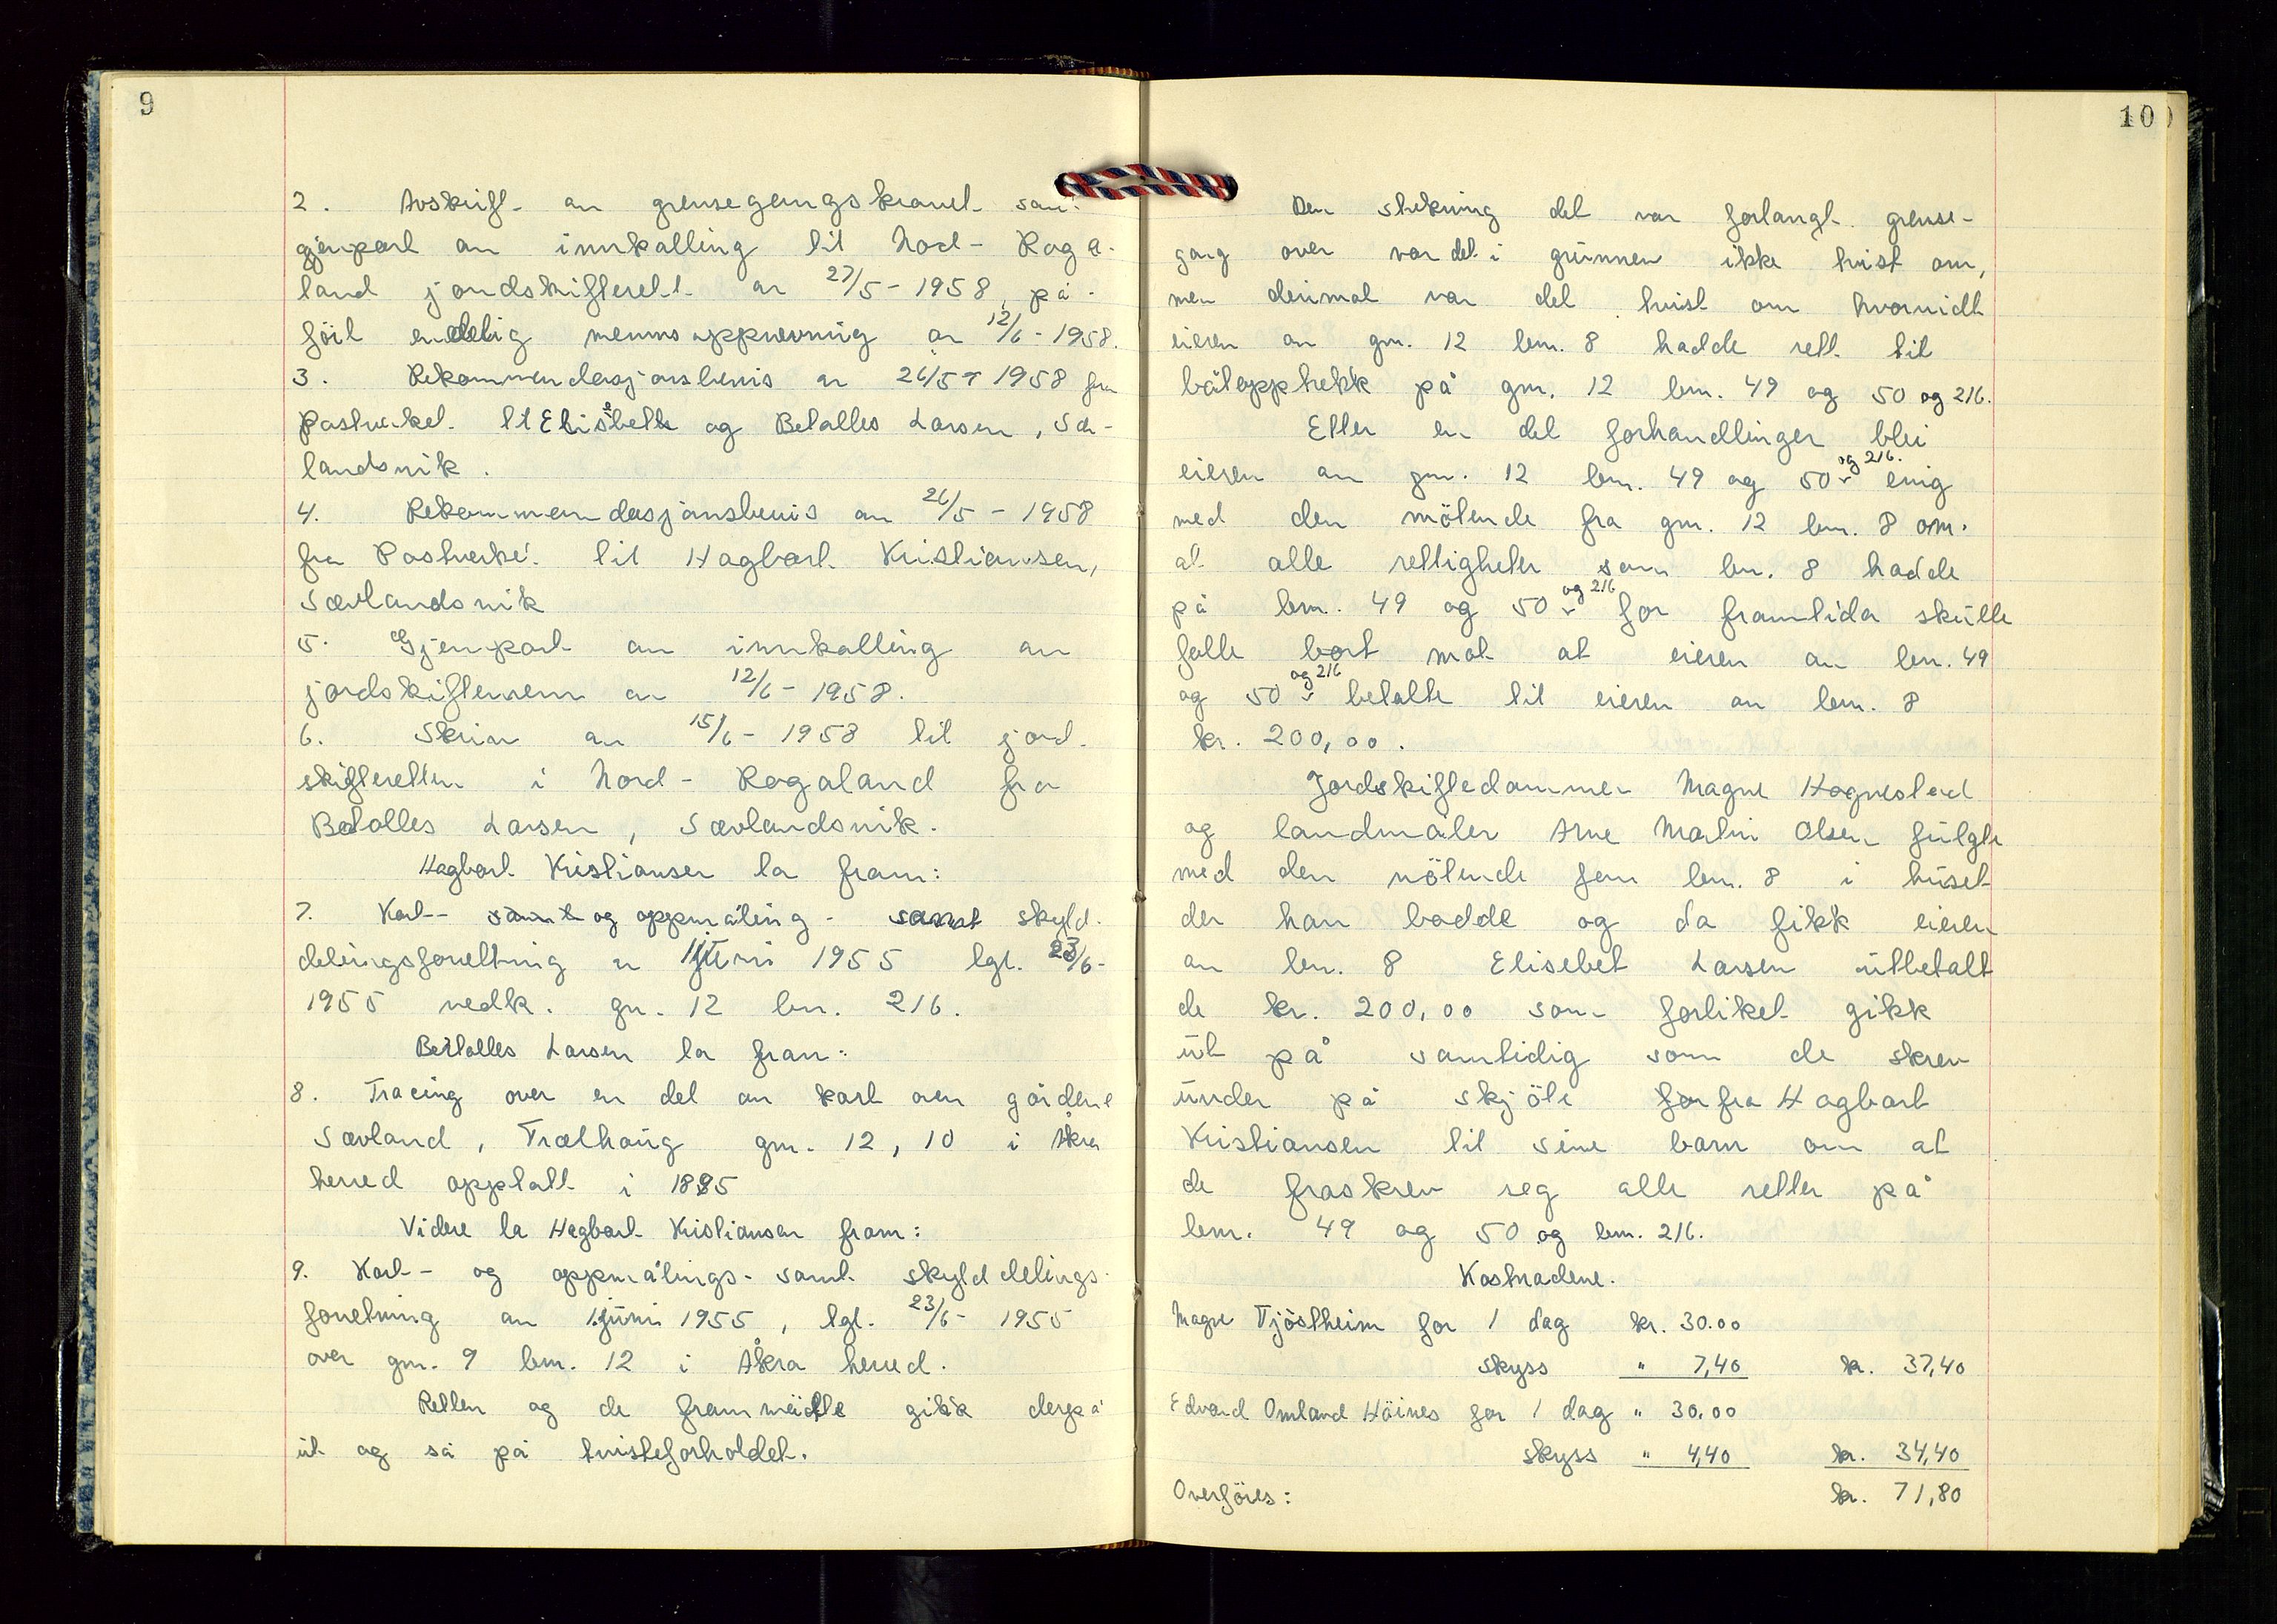 9
2. Avskrift av grensegangskravet samt
gjenpart av innkalling til Nord-Roga-
land jordskifterett av 27/5-1958, på-
ført endelig mennsoppnevning av 12/6-1958.
3. Rekommendasjonsbevis av 26/5-1958 fra
Postverket til Elisebeth og Betalles Larsen, Sæ-
landsvik.
4. Rekommendasjonsbevis av 26/5-1958
fra Postverket til Hagbart Kristiansen,
Sævlandsvik
5. Gjenpart av innkalling av
jordskiftemenn av 12/6-1958.
6. Skriv av 15/6-1958 til jord-
skifteretten i Nord-Rogaland fra
Betalles Larsen, Sævlandsvik.
Hagbart Kristiansen la fram:
7. Kart- samt og oppmåling- samt skyld-
delingsforretning av 1 juni 1955 tgl. 23/6-
1955 vedk. gn. 12 bnr. 216.
Betalles Larsen la fram:
8. Tracing over en del av kart over gårdene
Sævland, Trælhaug gnr. 12, 10 i Åkra
herred opptatt i 1895
Videre la Hagbart Kristiansen fram:
9. Kart- og oppmålings- samt skylddelings-
forretning av 1 juni 1955, tgl. 23/6-1955
over gnr. 9 bnr. 12 i Åkra herred.
Retten og de frammøtte gikk derpå
ut og så på tvisteforholdet.
10
Den strekning det var forlangt grense-
gang over var det i grunnen ikke tvist om,
men derimot var det tvist om hvorvidt
eieren av gnr. 12 bnr. 8 hadde rett til
båtopptrekk på gnr. 12 bnr. 49 og 50 og 216.
Etter en del forhandlinger blei
eieren av gnr. 12 bnr. 49 og 50 og 216. enig
med den møtende fra gnr. 12 bnr. 8 om.
at alle rettigheter som bnr. 8 hadde
på bnr. 49 og 50 og 216 for framtida skulle
falle bort mot at eieren av bnr. 49
og 50 og 216 betalte til eieren av bnr. 8
kr. 200,00.
Jordskiftedommer Magne Hognestad
og landmåler Arne Martin Olsen fulgte
med den møtende for bnr. 8 i huset
der han bodde og da fikk eieren
av bnr. 8 Elisebet Larsen utbetalt
de kr. 200,00 som forliket gikk
ut på samtidig som de skrev
under på skjøte for fra Hagbart
Kristiansen til sine barn om at
de fraskrev seg alle retter på
bnr. 49 og 50 og bnr. 216.
Kostnadene.
Magne Tjøstheim for 1 dag kr. 30.00
skyss " 7,40 kr. 37,40
Edvard Omland Høines for 1 dag " 30.00
skyss " 4,40 kr. 34,40
Overføres: kr. 71,80